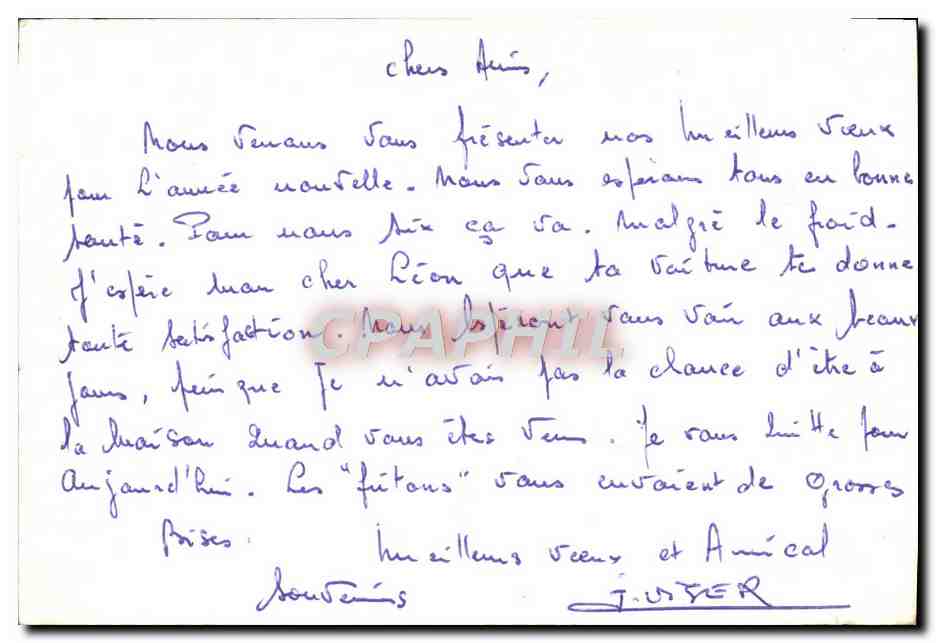 Chers Amis,
Nous venons vous présenter nos meilleurs vœux
pour L'année nouvelle. Nous vous espérons tous en bonne
santé. Pour nous six ça va. Malgré le froid.
J'espère mon cher Léon que ta voiture te donne
toute satisfaction. Nous espéront vous voir aux beaux
jours, puisque Je n'avais pas la chance d'être à
la maison quand vous êtes venu. Je vous quitte pour
Aujourd'hui. Les "fistons" vous envoient de grosses
Bises. Meilleurs vœux et Amical
Souvenirs J. VISER
CPAPHIL